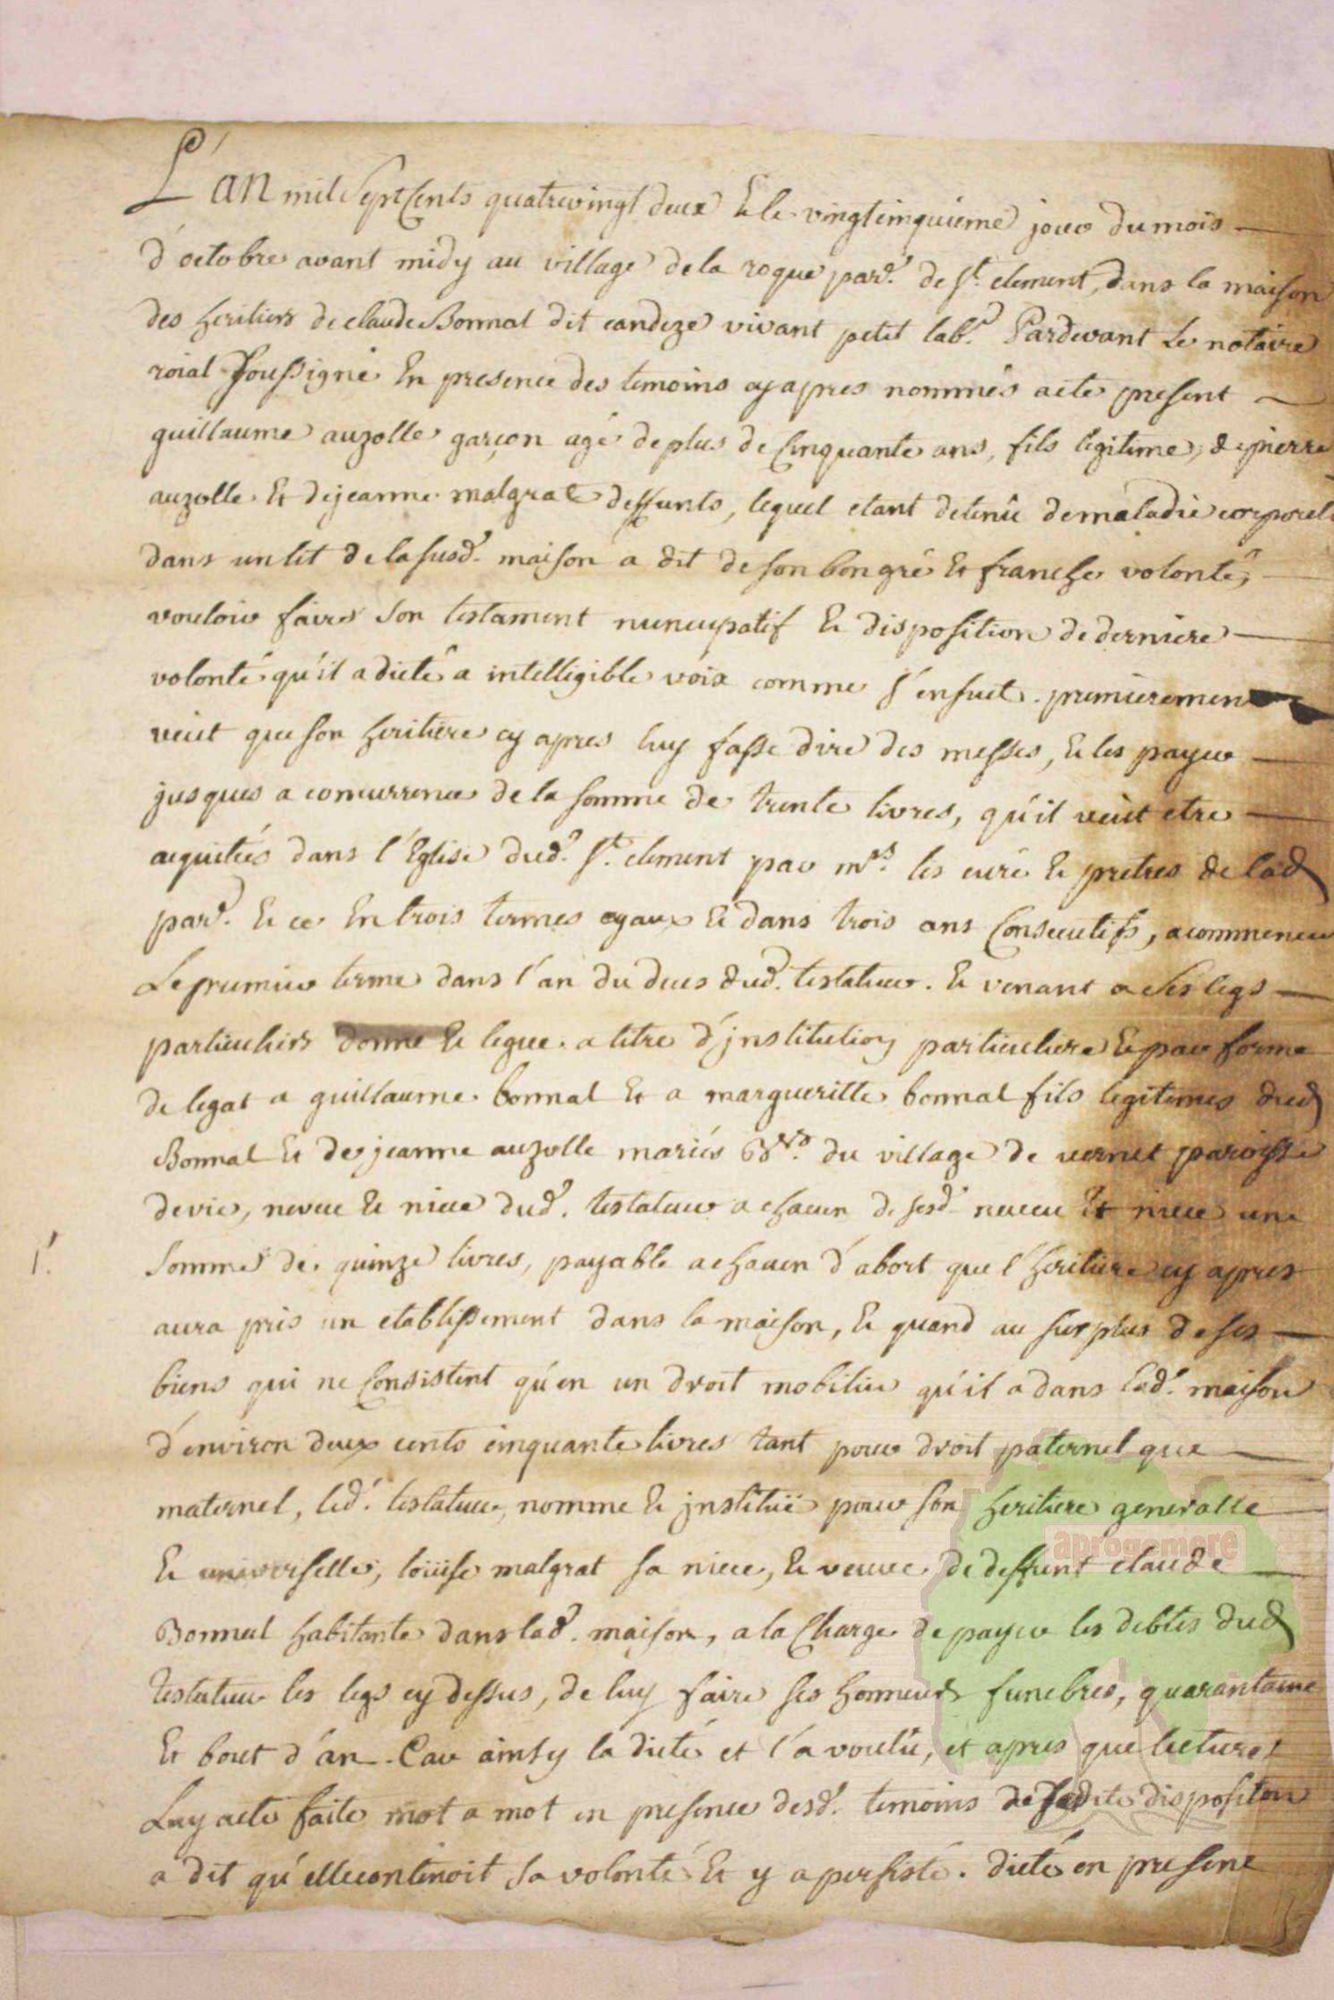 L'an mil sept cents quatrevingt deux & le vingtcinquieme jour du mois
d'octobre avant midy au village de la roque par.e de st. clement, dans la maison
des heritiers de claude Bonnal dit candeze vivant petit lab.r Pardevant Le notaire
roial soussigné En presence des temoins cy apres nommés a eté present
guillaume auzolle garçon agé de plus de Cinquante ans, fils legitime, de pierre
auzolle Et de jeanne malgrat deffunts, lequel etant detenû de maladie corporele
dans un lit de la susd.e maison a dit de son bon gré Et franche volonté,
vouloir faire son testament nuncupatif & disposition de derniere
volonté qu'il a dicté a intelligible voix comme s'ensuit. premierement
veut que son heritiere cy apres luy fasse dire des messes, & les payer
jusques a concurrence de la somme de trente livres, qu'il veut etre
acquitées dans l'Eglise dud.t st. clement par mrs. les curé & pretres de lad
par.e & ce En trois termes egaux & dans trois ans Consecutifs, a commencer
Le premier terme dans l'an du deces dud. testateur. & venant a ses legs
particuliers donne & legue a titre d'jnstitution particuliere & par forme
de legat a guillaume bonnal Et a margueritte bonnal fils legitimes dud
Bonnal Et de jeanne auzolle mariés du village de vernet paroisse
de vic, neveu & niece dud.t testateur a chacun de sesd. neveu Et niece une
1.
somme de quinze livres, payable a chacun d'abort que l'heritiere cy apres
aura pris un etablissement dans la maison, & quand au surplus de ses
biens qui ne Consistent qu'en un droit mobilier qu'il a dans lad.e maison
d'environ deux cents cinquante livres tant pour droit paternel que
maternel, led.t testateur, nomme & jnstitüe pour son heritiere generalle
& universelle, loüise malgrat sa niece, & veuve de deffunt claude
Bonnal habitante dans lad.e maison, a la Charge de payer les debtes dud
testateur les legs cy dessus, de luy faire ses honneurs funebres, quarantaine
Et bout d'an. Car ainsy la dicté et l'a voulû, et apres que lecture
Luy a eté faite mot a mot en presence desd. temoins de sadite disposition
a dit qu'elle contenoit sa volonté Et y a persisté. dicté en presence
aprogemere